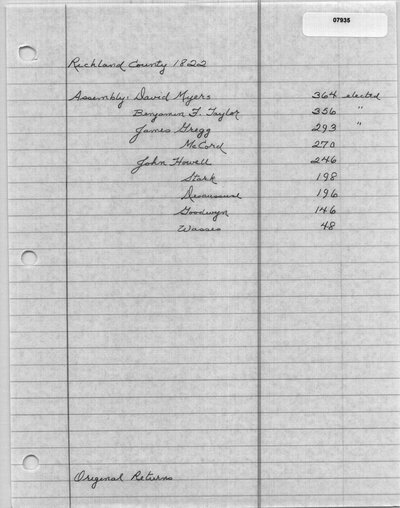 07935
Richland County 1822
Assembly: David Myers 364 elected
Benjamin F. Taylor 356 "
James Gregg 293 "
McCord 270
John Howell 246
Stark 198
Desaussure 196
Goodwyn 146
48
Original Returns